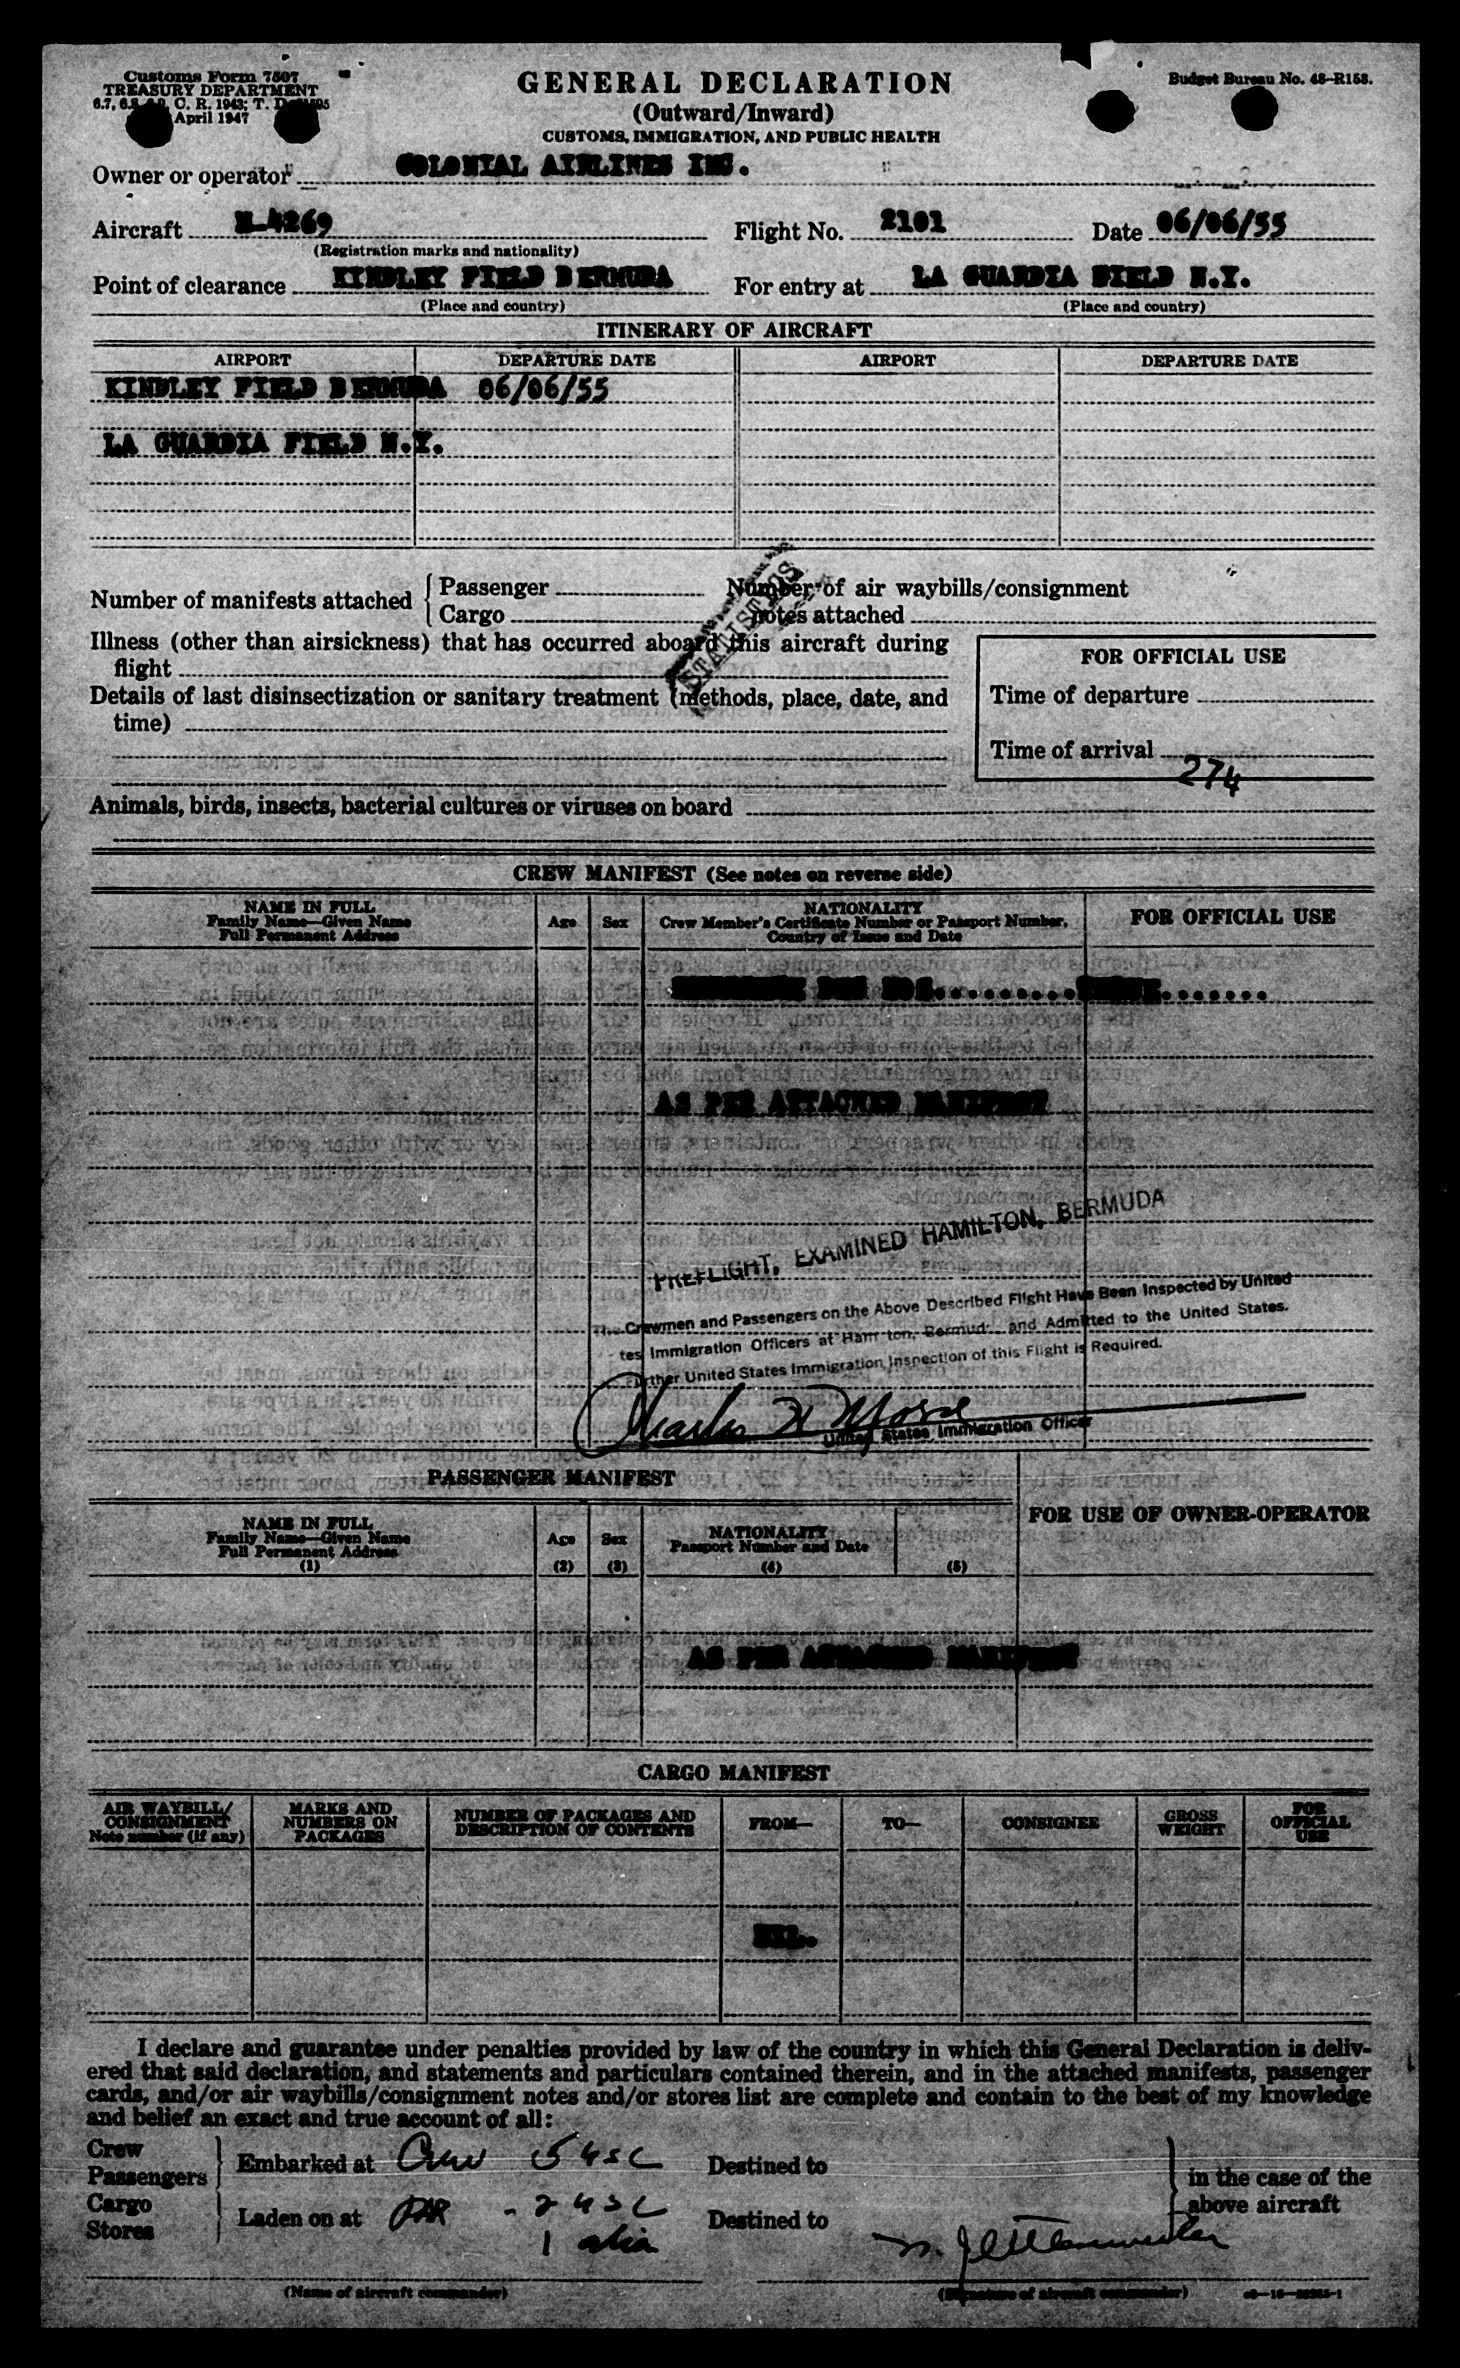 Customs Form 7507
TREASURY DEPARTMENT
6.7, 6.8, C. R. 1943; T. D.
April 1947
GENERAL DECLARATION
(Outward/Inward)
CUSTOMS, IMMIGRATION, AND PUBLIC HEALTH
Budget Bureau No. 48-R158.
Owner or operator COLONIAL AIRLINES INC.
Aircraft N-4269 Flight No. 2101 Date 06/06/55
(Registration marks and nationality)
Point of clearance KINDLEY FIELD BERMUDA For entry at LA GUARDIA FIELD N.Y.
(Place and country) (Place and country)
ITINERARY OF AIRCRAFT
AIRPORT DEPARTURE DATE AIRPORT DEPARTURE DATE
KINDLEY FIELD BERMUDA 06/06/55
LA GUARDIA FIELD N.Y.
Number of manifests attached { Passenger Number of air waybills/consignment
Cargo notes attached
STATISTICS
Illness (other than airsickness) that has occurred aboard this aircraft during
flight
Details of last disinsectization or sanitary treatment (methods, place, date, and
time)
FOR OFFICIAL USE
Time of departure
Time of arrival
274
Animals, birds, insects, bacterial cultures or viruses on board
CREW MANIFEST (See notes on reverse side)
NAME IN FULL
Family Name—Given Name
Full Permanent Address
Age Sex
NATIONALITY
Crew Member's Certificate Number or Passport Number,
Country of Issue and Date
FOR OFFICIAL USE
AS PER ATTACHED MANIFEST
PREFLIGHT, EXAMINED HAMILTON, BERMUDA
The Crewmen and Passengers on the Above Described Flight Have Been Inspected by United
tes Immigration Officers at Hamilton, Bermuda and Admitted to the United States.
Further United States Immigration Inspection of this Flight is Required.
Charles W Morse
United States Immigration Officer
PASSENGER MANIFEST
NAME IN FULL
Family Name—Given Name
Full Permanent Address
(1)
Age
(2)
Sex
(3)
NATIONALITY
Passport Number and Date
(4) (5)
FOR USE OF OWNER-OPERATOR
AS PER ATTACHED MANIFEST
CARGO MANIFEST
AIR WAYBILL/
CONSIGNMENT
Note number (if any)
MARKS AND
NUMBERS ON
PACKAGES
NUMBER OF PACKAGES AND
DESCRIPTION OF CONTENTS
FROM—
TO—
CONSIGNEE
GROSS
WEIGHT
FOR
OFFICIAL
USE
NIL.
I declare and guarantee under penalties provided by law of the country in which this General Declaration is deliv-
ered that said declaration, and statements and particulars contained therein, and in the attached manifests, passenger
cards, and/or air waybills/consignment notes and/or stores list are complete and contain to the best of my knowledge
and belief an exact and true account of all:
Crew
Passengers } Embarked at Crew 5 usc Destined to } in the case of the
Cargo
Stores } Laden on at PAX - 2 usc Destined to above aircraft
1 alien
(Name of aircraft commander) (Signature of aircraft commander)